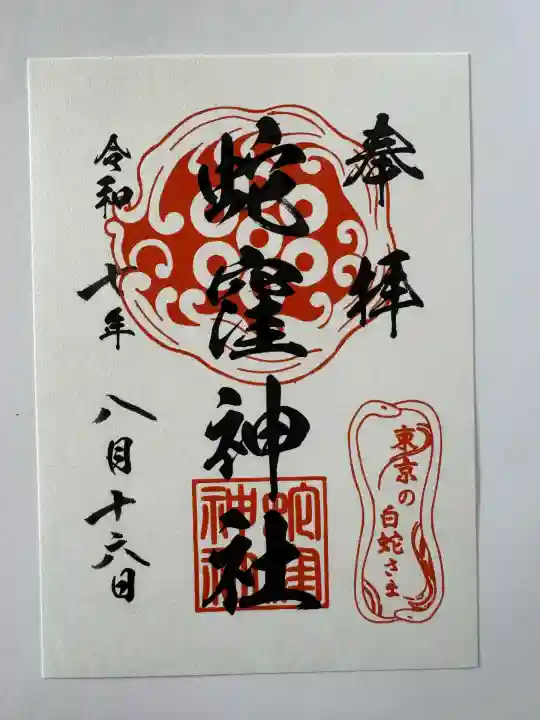 奉拝
蛇窪神社
令和七年八月十六日
東京の
白蛇さま
蛇窪
神社